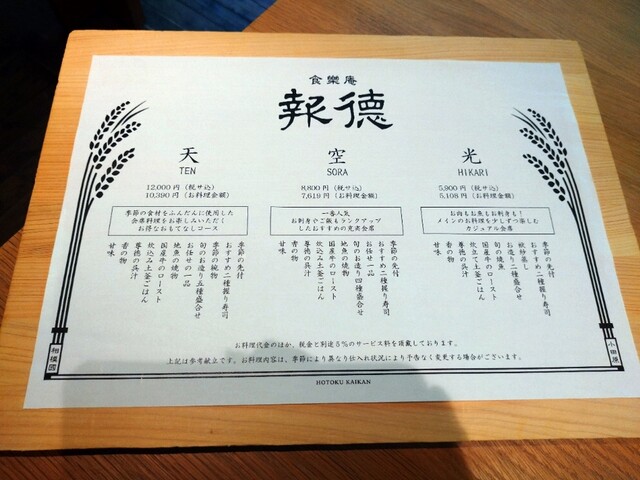 食樂庵
報徳
天
TEN
12,000円（税サ込）
10,390円（お料理金額）
季節の食材をふんだんに使用した
会席料理をお楽しみいただく
お得なおもてなしコース
季節の先付
おすすめ二種握り寿司
季節の椀物
旬のお造り五種盛合せ
お任せの一品
地魚の焼物
国産牛のロースト
炊込み土釜ごはん
尊徳の呉汁
香の物
甘味
空
SORA
8,800円（税サ込）
7,619円（お料理金額）
一番人気
お刺身やご飯もランクアップ
したおすすめの充実会席
季節の先付
おすすめ二種握り寿司
お任せ一品
旬のお造り四種盛合せ
地魚の焼物
国産牛のロースト
炊込み土釜ごはん
尊徳の呉汁
香の物
甘味
光
HIKARI
5,900円（税サ込）
5,108円（お料理金額）
お肉もお魚もお刺身も！
メインのお料理を少しずつ楽しむ
カジュアル会席
季節の先付
おすすめ二種握り寿司
お造り二種盛合せ
旬の焼魚
国産牛のロースト
炊立て土釜ごはん
尊徳の呉汁
香の物
甘味
お料理代金のほか、税金と別途5%のサービス料を頂戴しております。
上記は参考献立です。お料理内容は、季節により異なり仕入れ状況により予告なく変更する場合がございます。
相模國
小田原
HOTOKU KAIKAN